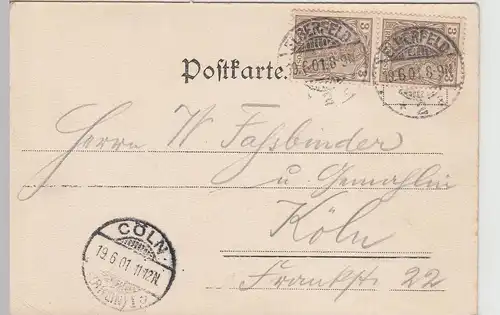 3 3
ELBERFELD
19.6.01.8-9N
ELBERFELD
19.6.01.8-9N
Postkarte.
Herrn W. Fassbinder
u Gemahlin
Köln
Frankst 22
CÖLN
19.6.01.11-12N.
(RHEIN)